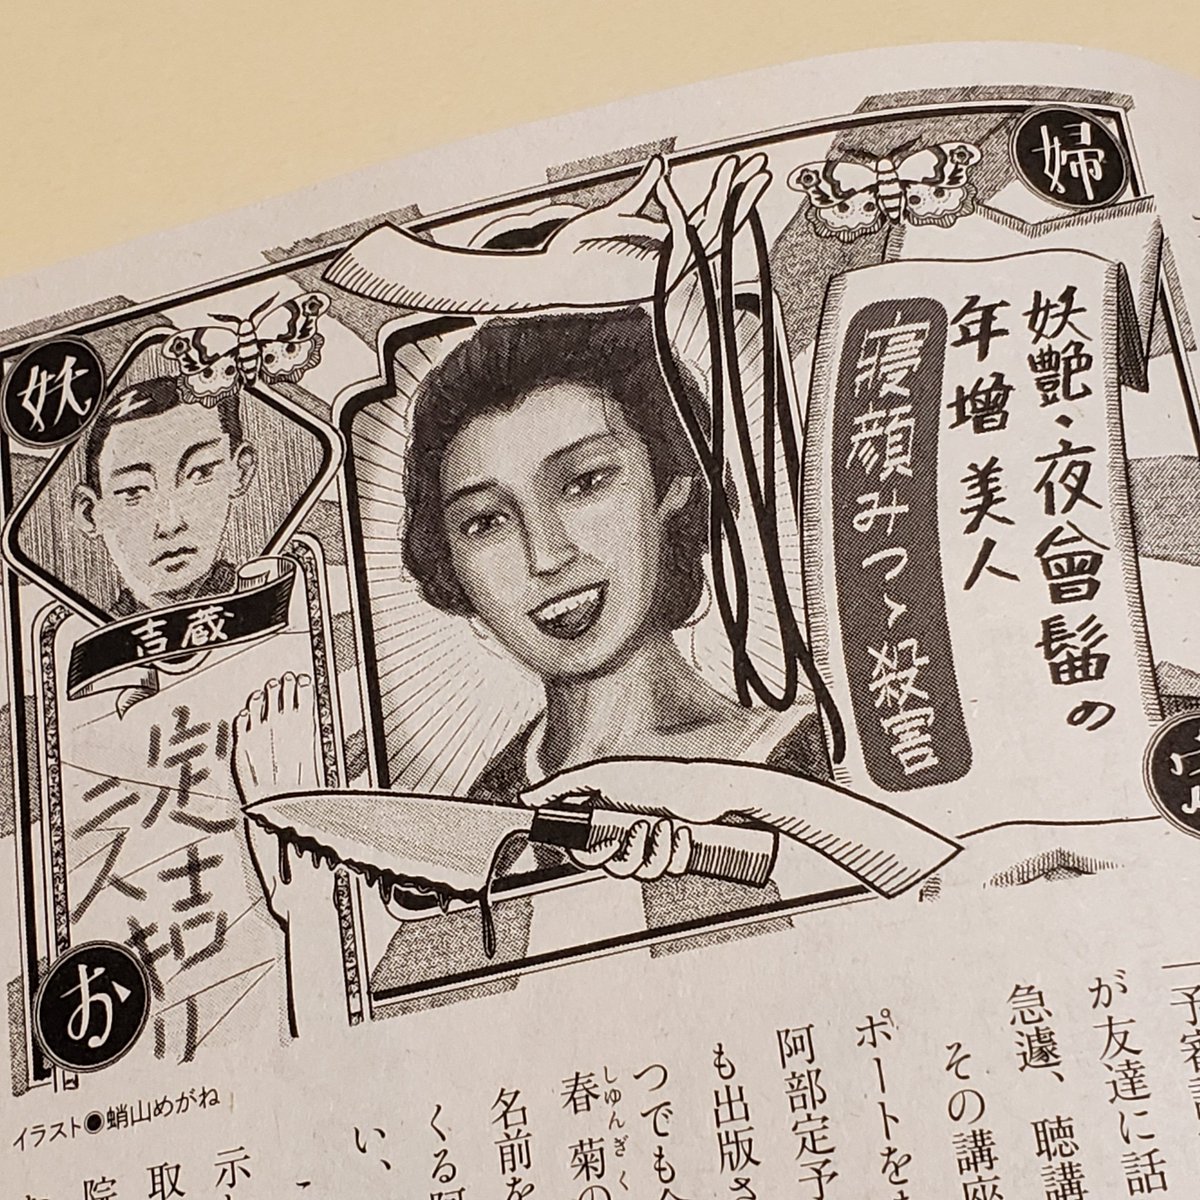 婦
妖艶・夜會髷の
年増美人
寝顔みつゝ殺害
妖
吉蔵
定吉キリ
二人
お
イラスト●蛸山めがね
が友達に話
急遽、聴講
その講座
ポートを
阿部定予
も出版さ
つでも
春菊の
しゅんぎく
名前を
くる
い、
示
取
院